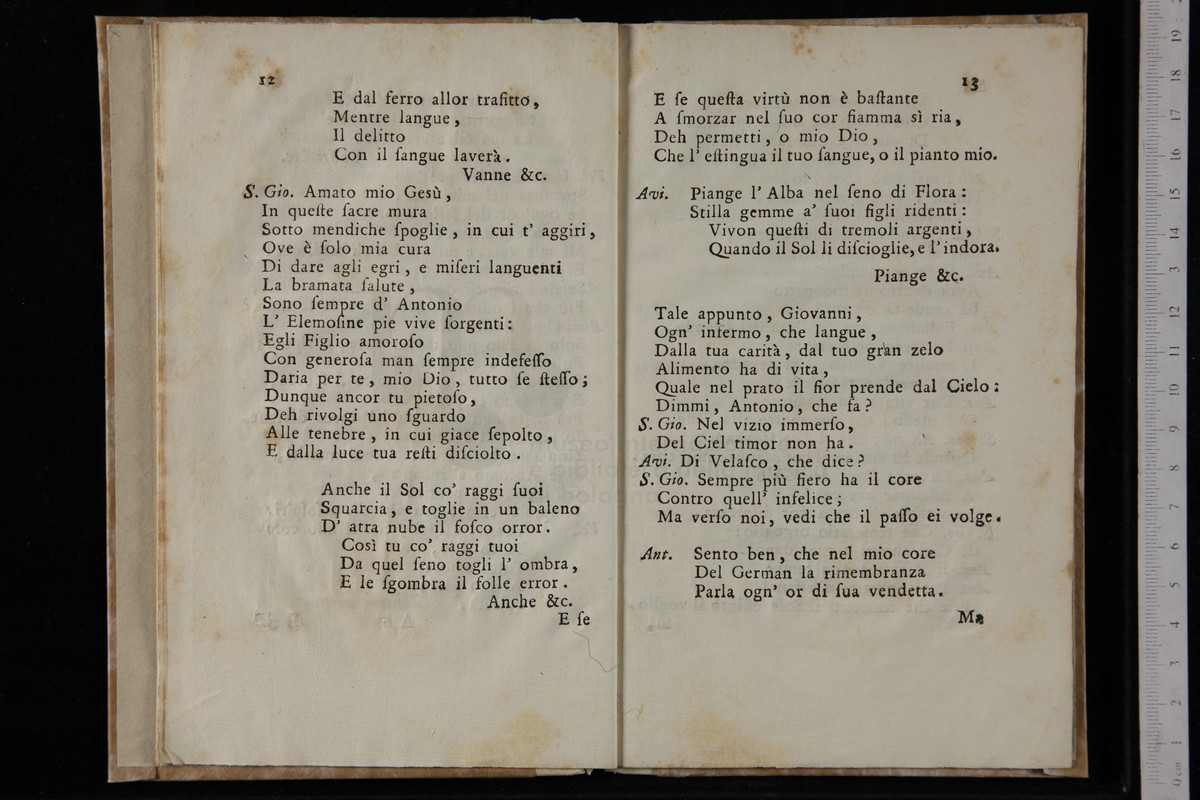 12
E dal ferro allor trafitto,
Mentre langue,
Il delitto
Con il ſangue laverà.
Vanne &c.
S. Gio. Amato mio Gesù,
In queſte ſacre mura
Sotto mendiche ſpoglie, in cui t' aggiri,
Ove è ſolo mia cura
Di dare agli egri, e miſeri languenti
La bramata ſalute,
Sono ſempre d' Antonio
L' Elemoſine pie vive ſorgenti:
Egli Figlio amoroſo
Con generoſa man ſempre indefeſſo
Daria per te, mio Dio, tutto ſe ſteſſo;
Dunque ancor tu pietoſo,
Deh rivolgi uno ſguardo
Alle tenebre, in cui giace ſepolto,
E dalla luce tua reſti diſciolto.
Anche il Sol co' raggi ſuoi
Squarcia, e toglie in un baleno
D' atra nube il foſco orror.
Così tu co' raggi tuoi
Da quel ſeno togli l' ombra,
E le ſgombra il folle error.
Anche &c.
E ſe
13
E ſe queſta virtù non è baſtante
A ſmorzar nel ſuo cor fiamma sì ria,
Deh permetti, o mio Dio,
Che l' eſtingua il tuo ſangue, o il pianto mio.
Avi. Piange l' Alba nel ſeno di Flora:
Stilla gemme a' ſuoi figli ridenti:
Vivon queſti di tremoli argenti,
Quando il Sol li diſcioglie, e l' indora.
Piange &c.
Tale appunto, Giovanni,
Ogn' infermo, che langue,
Dalla tua carità, dal tuo gran zelo
Alimento ha di vita,
Quale nel prato il fior prende dal Cielo:
Dimmi, Antonio, che fa?
S. Gio. Nel vizio immerſo,
Del Ciel timor non ha.
Avi. Di Velaſco, che dice?
S. Gio. Sempre più fiero ha il core
Contro quell' infelice;
Ma verſo noi, vedi che il paſſo ei volge.
Ant. Sento ben, che nel mio core
Del German la rimembranza
Parla ogn' or di ſua vendetta.
Ma